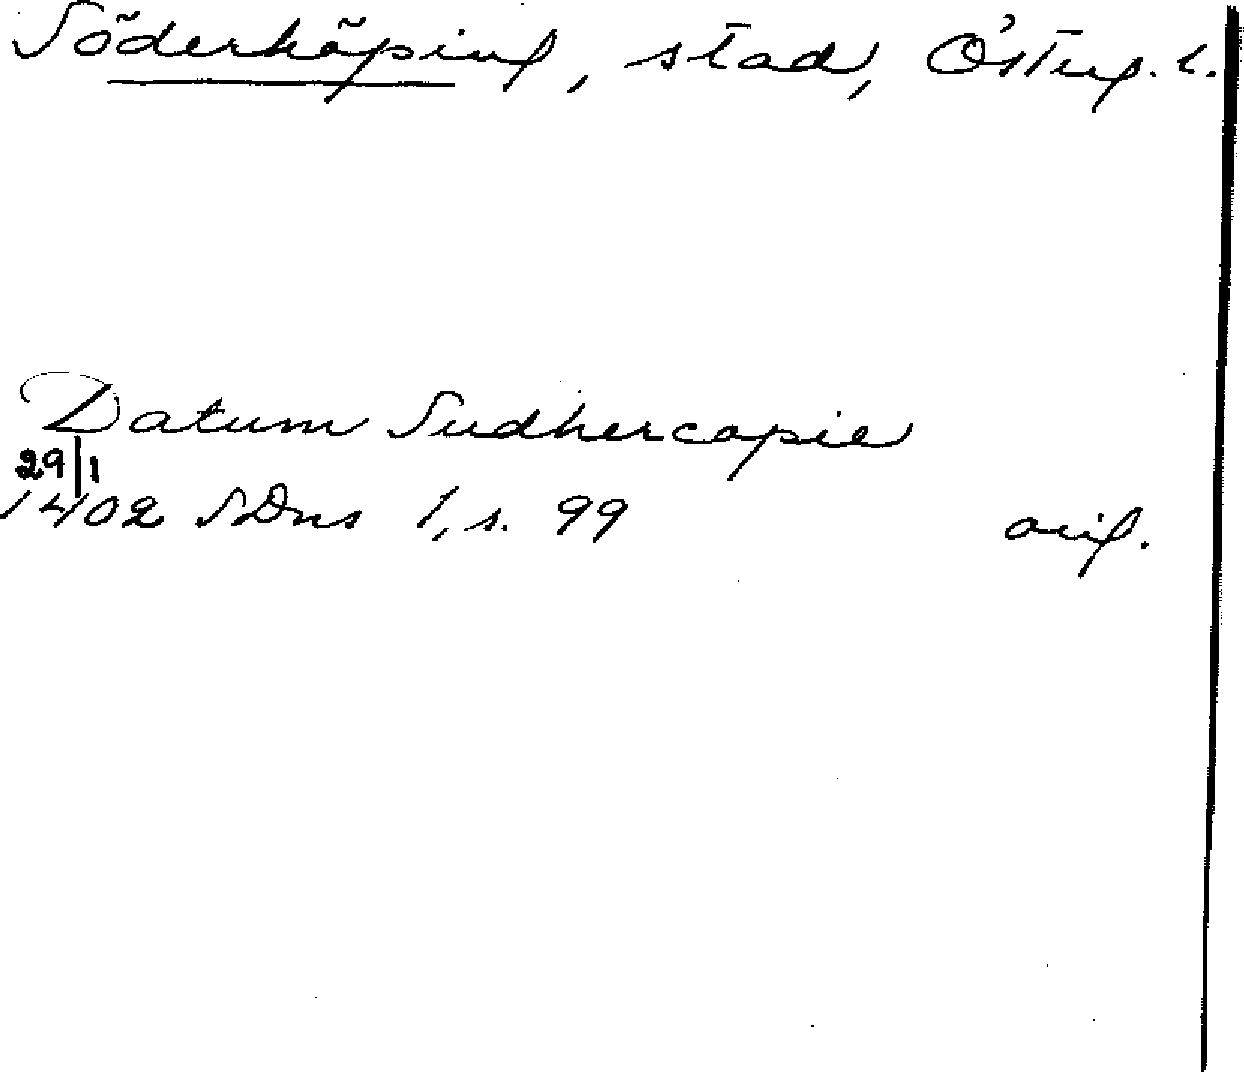 Söderköping, stad, Österg. l.
Datum Sudhercopie
29/1
1402 SDns 1, s. 99 orig.